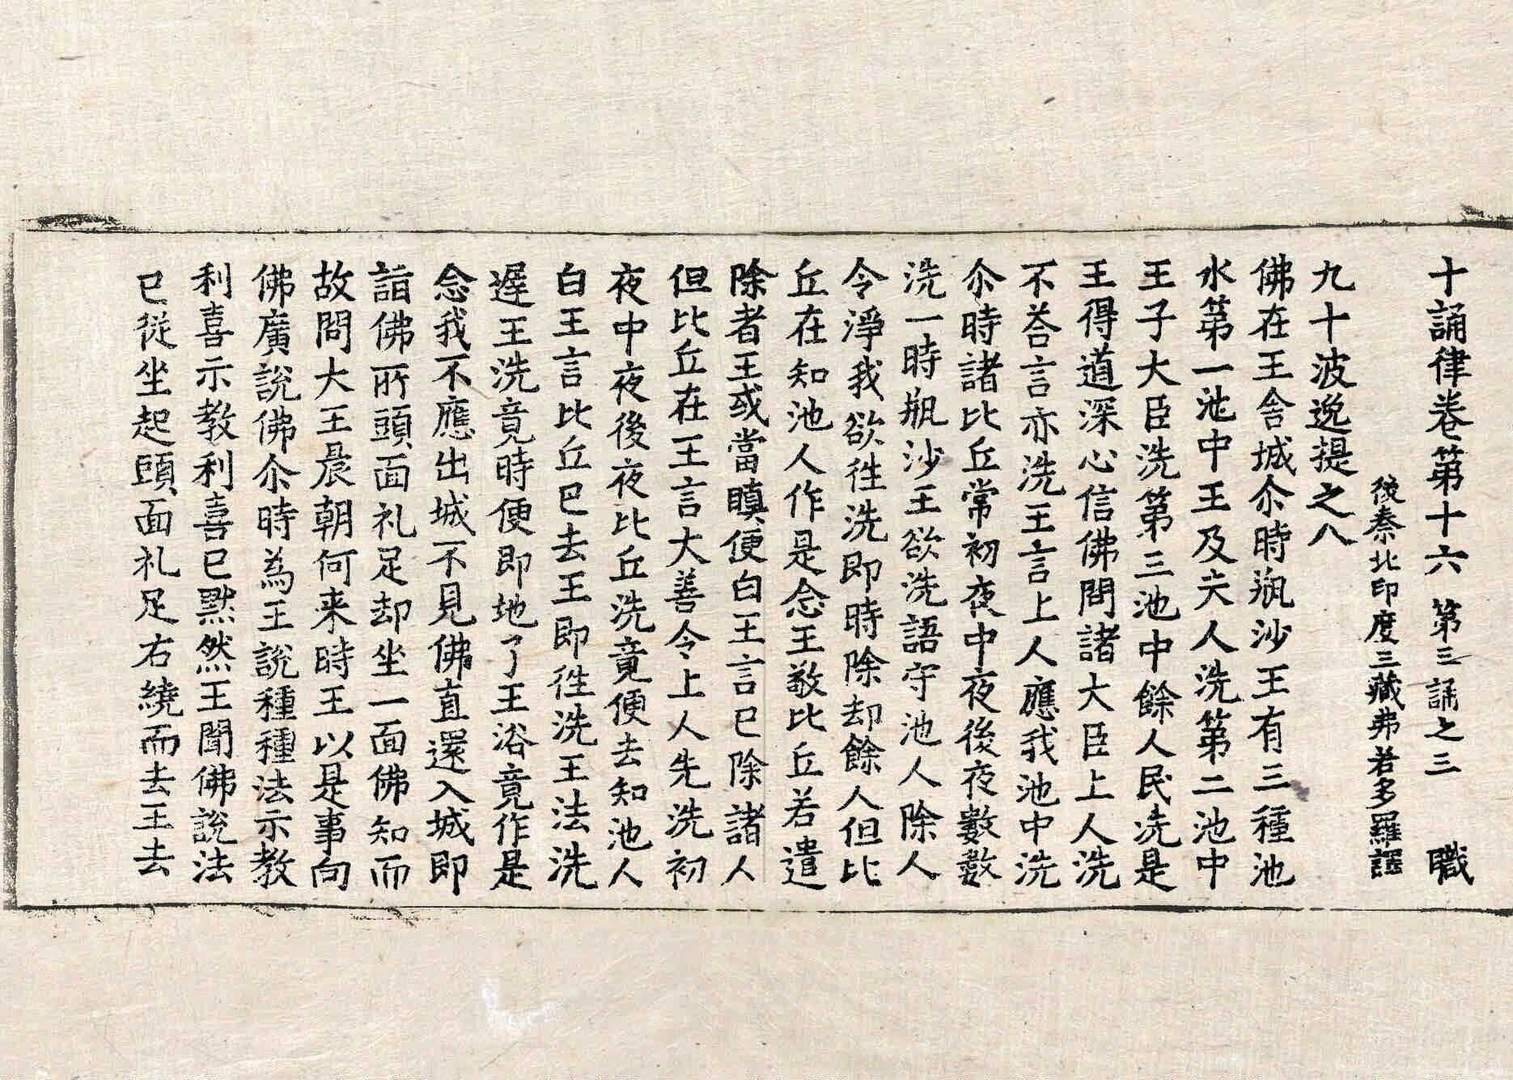 十誦律卷第十六 第三誦之三 職
後秦北印度三藏弗若多羅譯
九十波逸提之八
佛在王舍城尒時瓶沙王有三種池
水第一池中王及夫人洗第二池中
王子大臣洗第三池中餘人民洗是
王得道深心信佛問諸大臣上人洗
不荅言亦洗王言上人應我池中洗
尒時諸比丘常初夜中夜後夜數數
洗一時瓶沙王欲洗語守池人除人
令淨我欲徃洗即時除却餘人但比
丘在知池人作是念王敬比丘若遣
除者王或當瞋便白王言已除諸人
但比丘在王言大善令上人先洗初
夜中夜後夜比丘洗竟便去知池人
白王言比丘已去王即徃洗王法洗
遲王洗竟時便即地了王浴竟作是
念我不應出城不見佛直還入城即
詣佛所頭面礼足却坐一面佛知而
故問大王晨朝何来時王以是事向
佛廣說佛尒時為王說種種法示教
利喜示教利喜已黙然王聞佛說法
已從坐起頭面礼足右繞而去王去